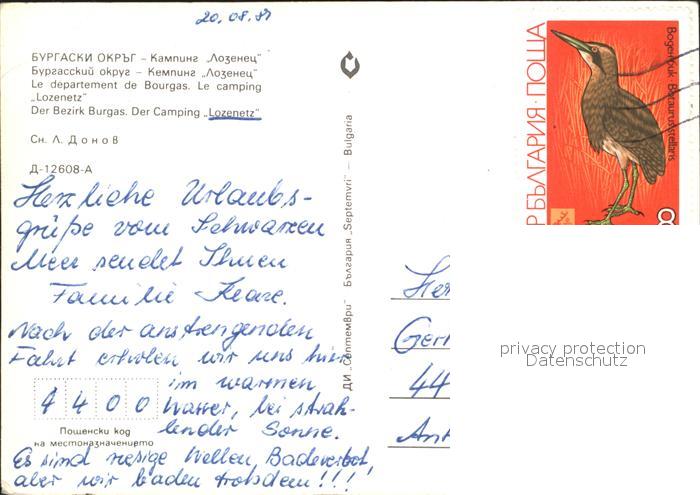 20.08.81
БУРГАСКИ ОКРЪГ – Кампинг „Лозенец"
Бургасский округ – Кемпинг „Лозенец"
Le departement de Bourgas. Le camping
„Lozenetz"
Der Bezirk Burgas. Der Camping „Lozenetz"
Сн. Л. Донов
Д-12608-А
Herzliche Urlaubs-
grüße vom Schwarzen
Meer sendet Ihnen
Familie
Nach der anstrengenden
Fahrt erholen wir uns hier
im warmen
Wasser, bei strah-
lender Sonne.
Es sind riesige Wellen, Badeverbot,
aber wir baden trotzdem!!!
4400
Пощенски код
на местоназначението
ДИ „Септември" България „Septemvri" – Bulgaria
Р БЪЛГАРИЯ · ПОЩА
Воден бик · Botaurus stellaris
8
Her
Gerr
44
Ant
privacy protection
Datenschutz